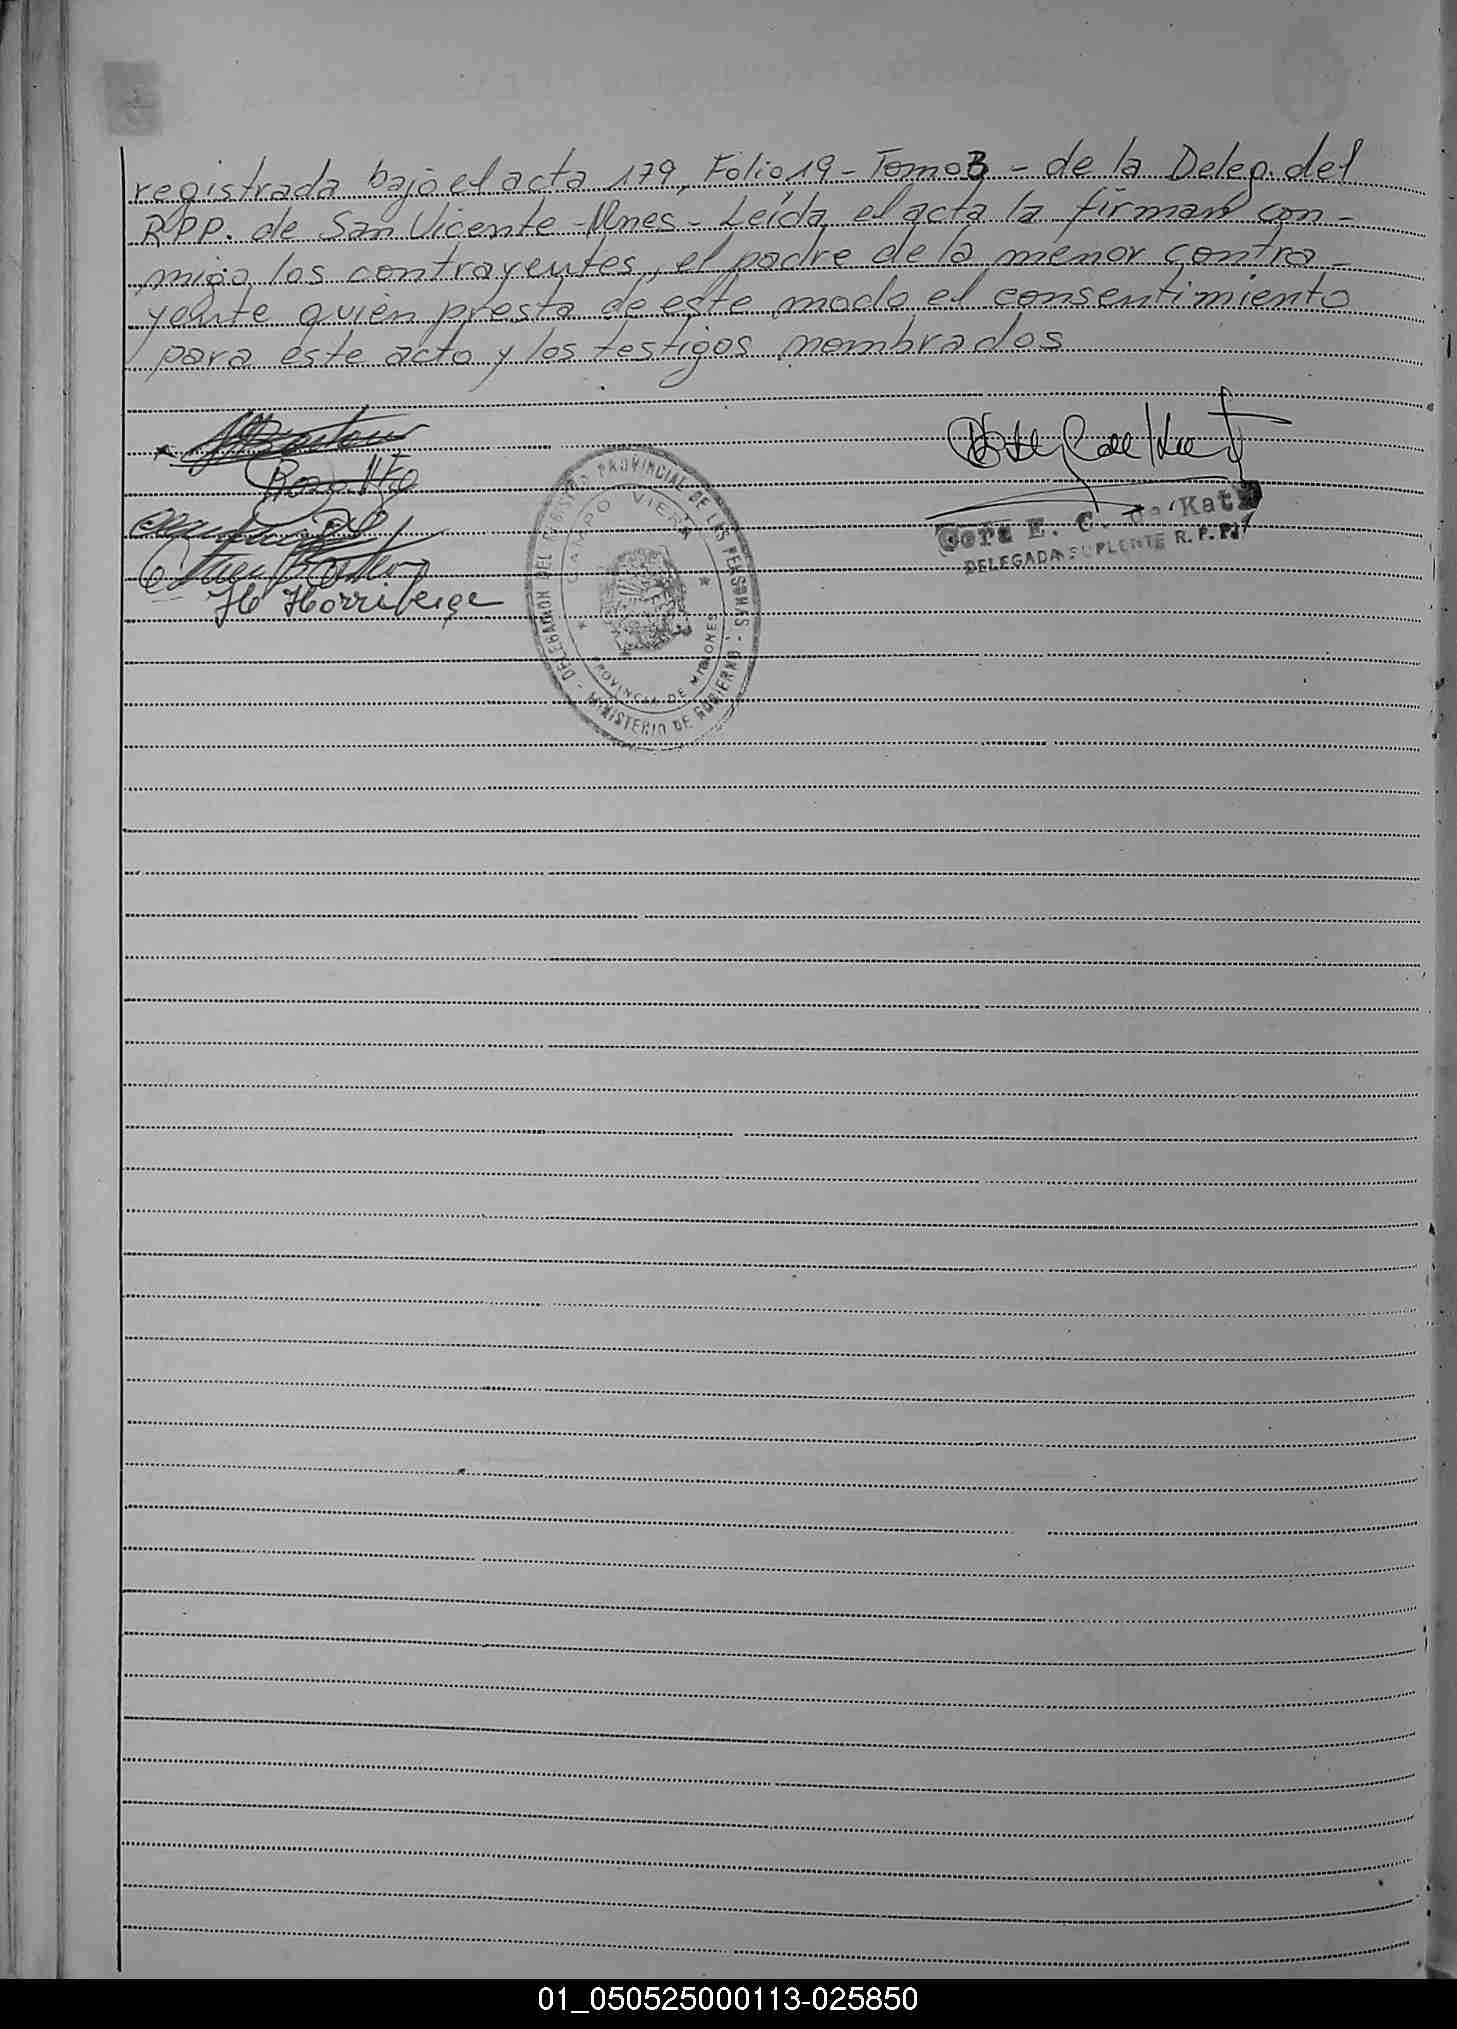 registrada bajo el acta 179, Folio 19 - Tomo 3 - de la Deleg. del
RPP. de San Vicente - Mnes - Leída el acta la firman con-
migo los contrayentes, el padre de la menor contra-
yente quién presta de este modo el consentimiento
para este acto y los testigos nombrados
DELEGACION DEL REGISTRO PROVINCIAL DE LAS PERSONAS - MINISTERIO DE GOBIERNO -
CAMPO VIERA
PROVINCIA DE MISIONES
E. C. de Katz
DELEGADA SUPLENTE R. P. P.
H Horrisberger
01_050525000113-025850